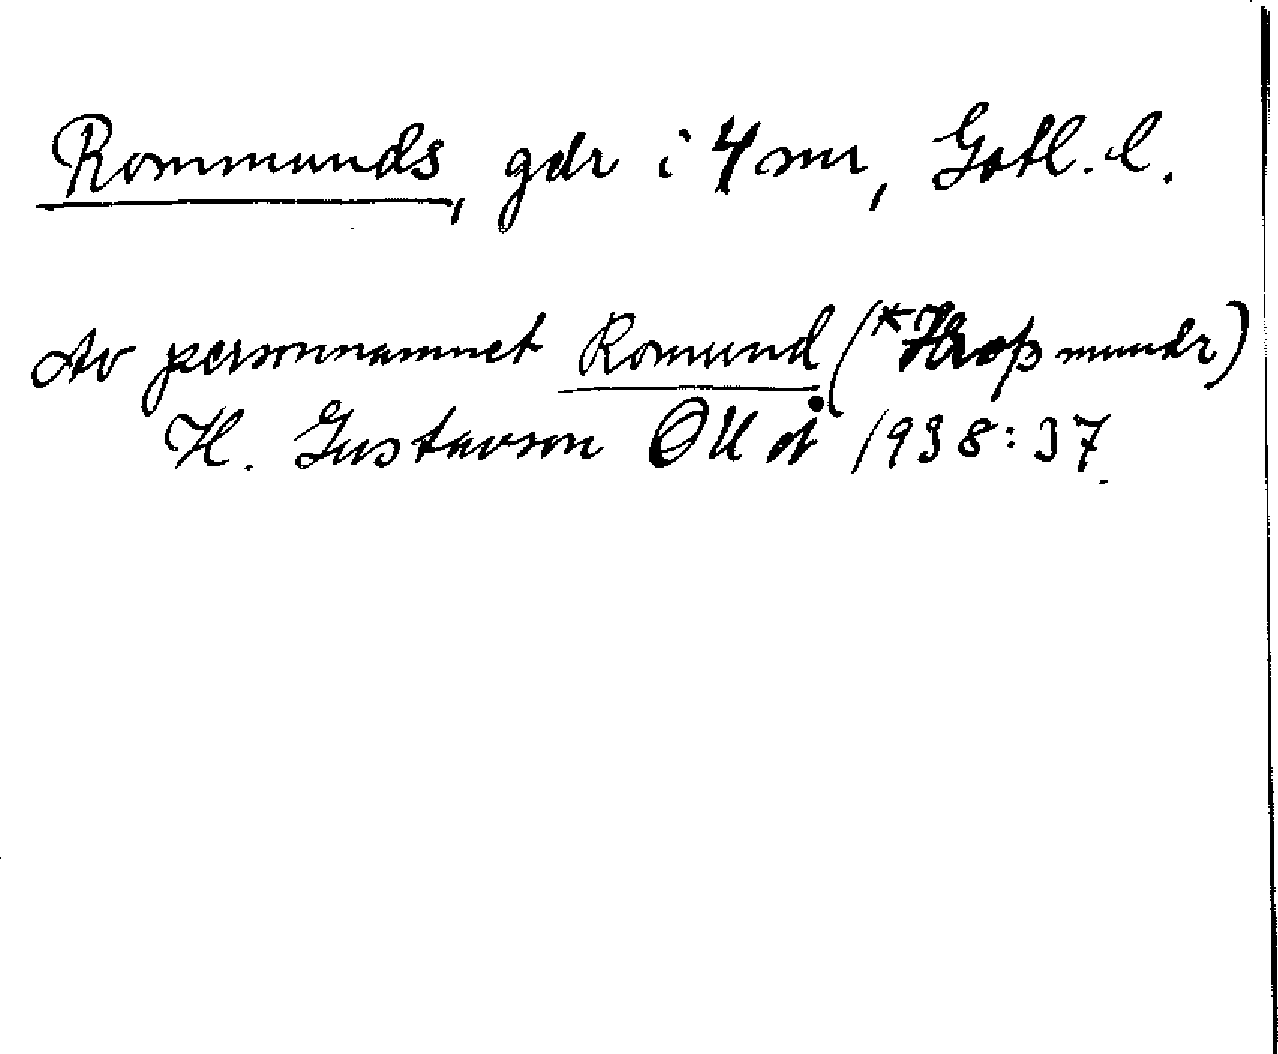 Rommunds, gdr i 4 snr, Gotl. l.
Av personnamnet Romund (*Hroþmundr)
H. Gustavson OUÅ 1938:37.